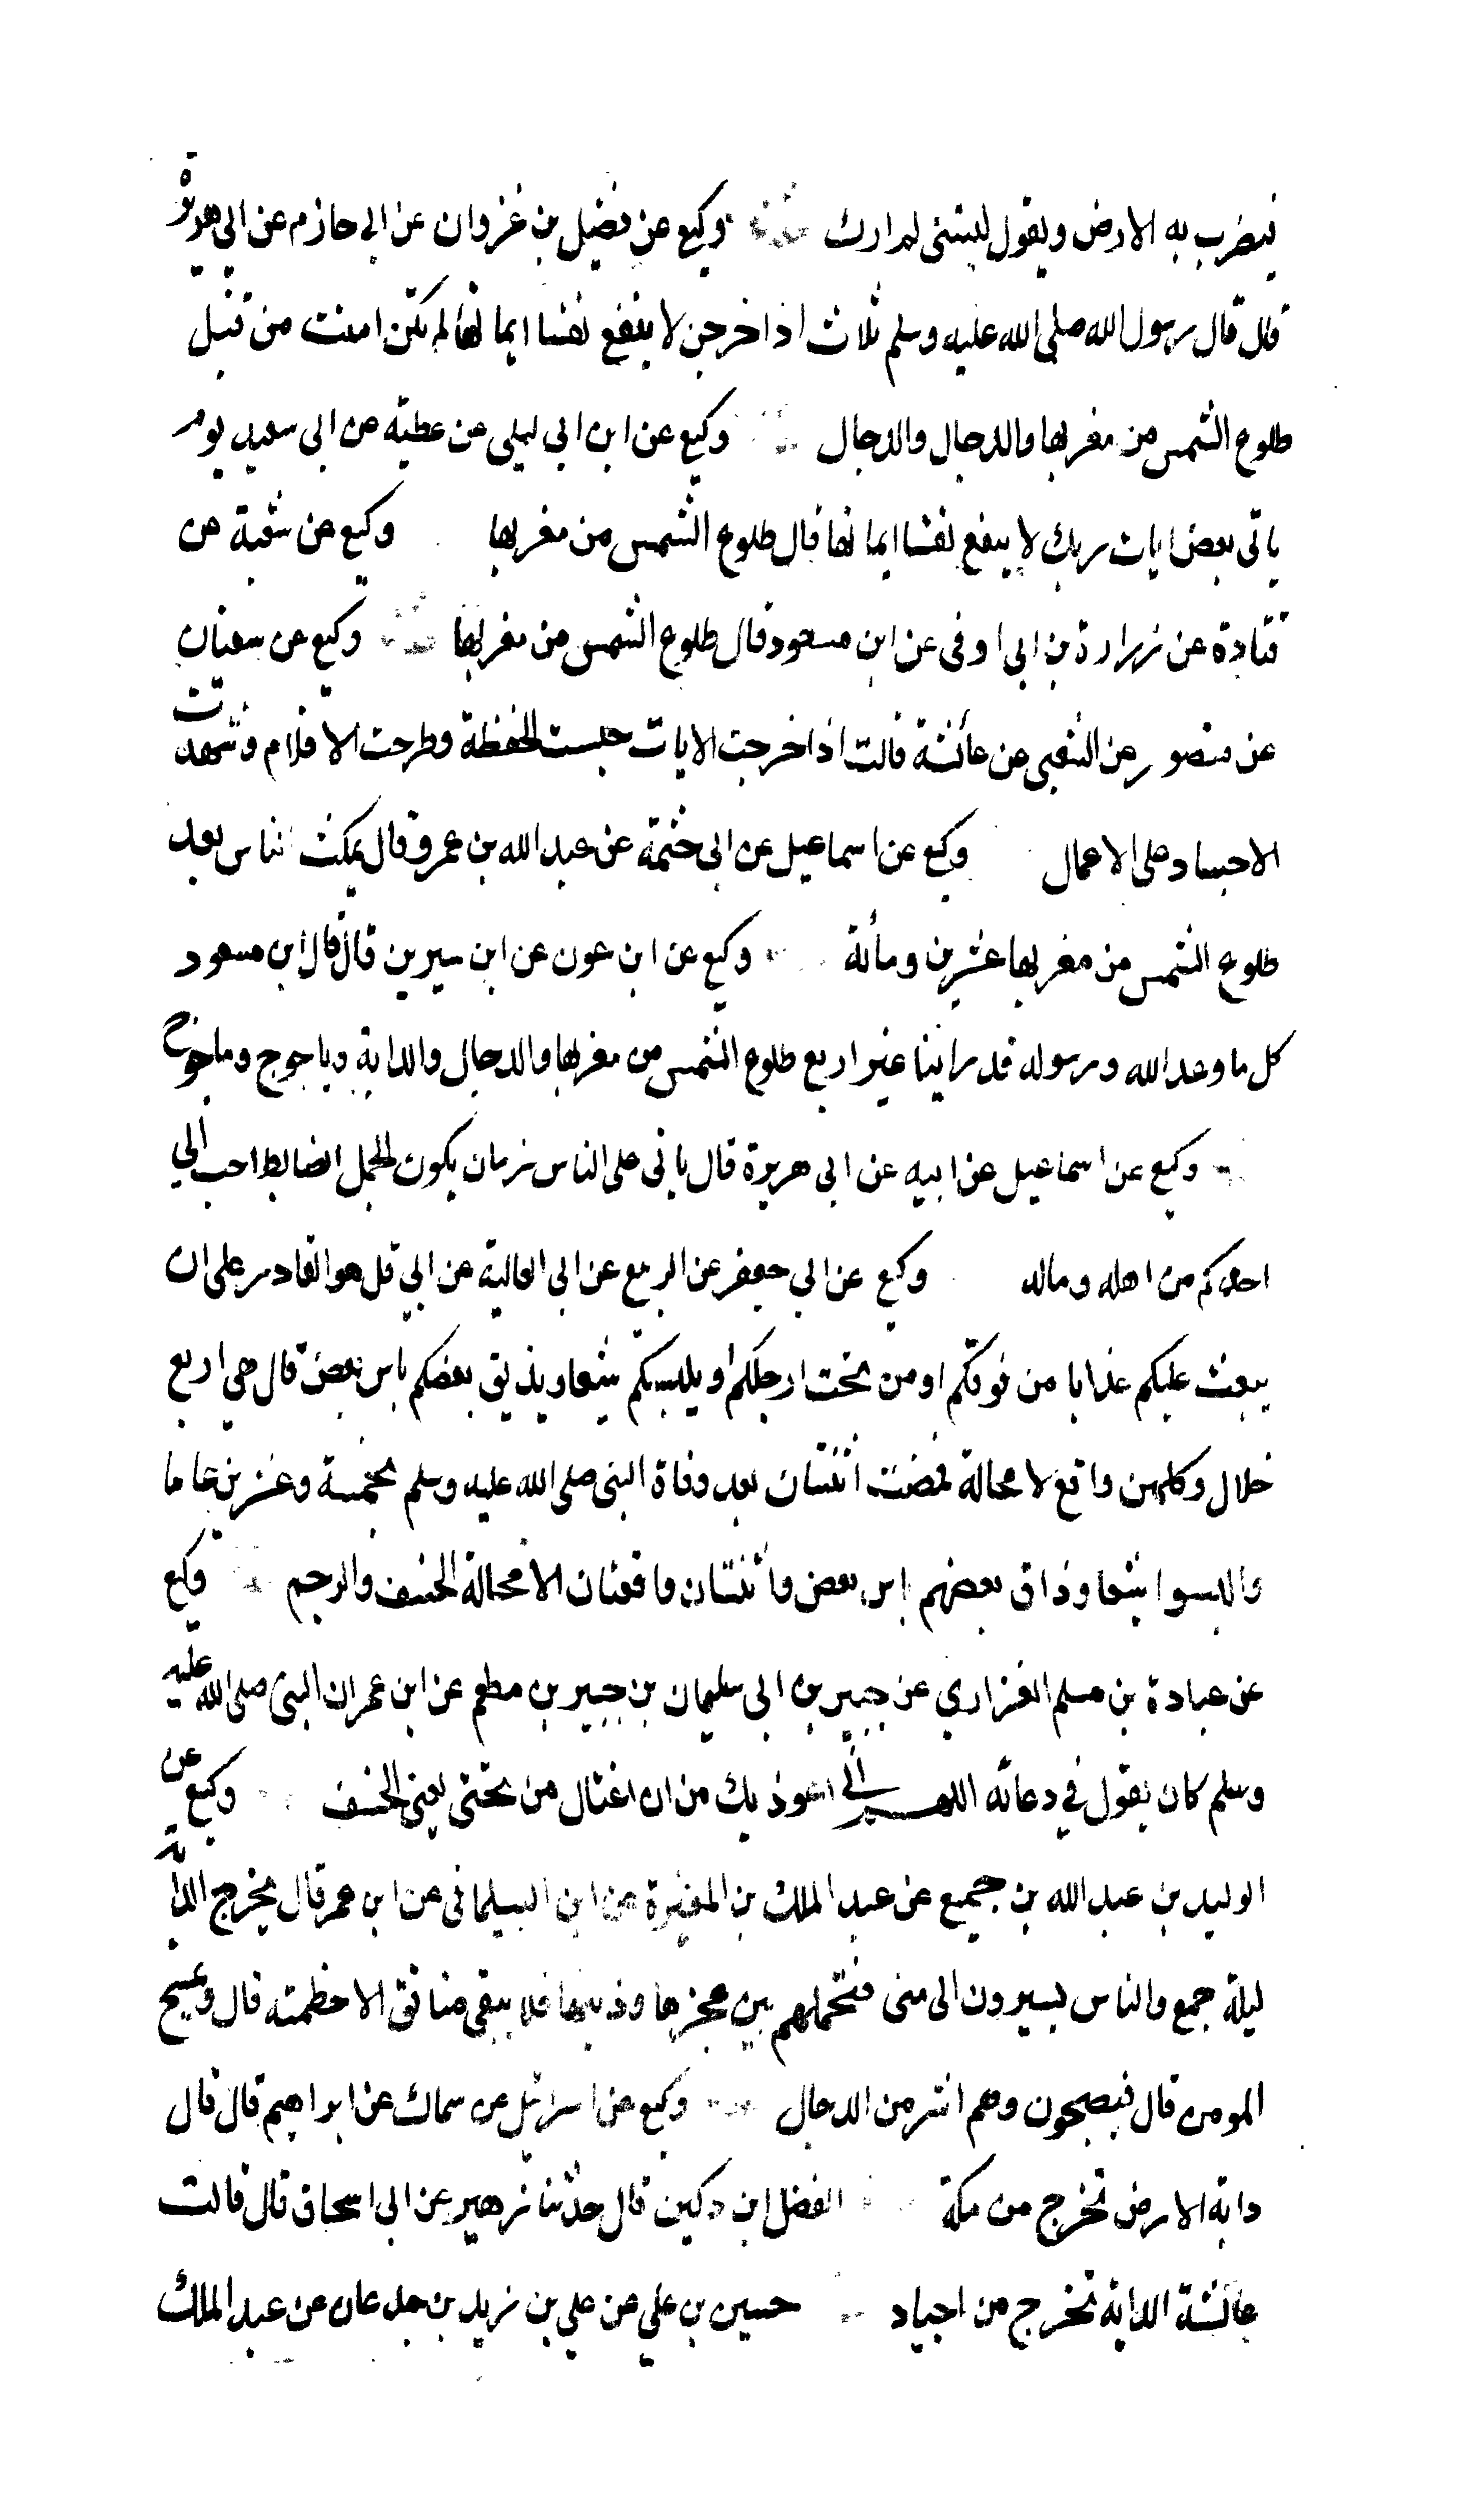 فيضرب به الارض ويقول ليتنى لم ارك وكيع عن فضيل بن غزوان عن ابي حازم عن ابي هريرة
قال قال رسول الله صلى الله عليه وسلم ثلاث اذا خرجن لا ينفع نفسا ايمانها لم تكن امنت من قبل
طلوع الشمس من مغربها والدجال والدجال وكيع عن ابن ابي ليلى عن عطية عن ابى سعيد يوم
ياتى بعض ايات ربك لا ينفع نفسا ايمانها قال طلوع الشمس من مغربها وكيع عن شعبة عن
قتادة عن زرارة بن ابي اوفى عن ابن مسعود قال طلوع الشمس من مغربها وكيع عن سفيان
عن منصور عن الشعبى عن عائشة قالت اذا خرجت الايات حبست الحفظة وطرحت الاقلام وشهدت
الاجساد على الاعمال وكيع عن اسماعيل عن ابى خثمة عن عبد الله بن عمرو قال يمكث الناس بعد
طلوع الشمس من مغربها عشرين ومائة وكيع عن ابن عون عن ابن سيرين قال قال ابن مسعود
كل ما وعد الله ورسوله قد راينا غير اربع طلوع الشمس من مغربها والدجال والدابة وياجوج وماجوج
وكيع عن اسماعيل عن ابيه عن ابى هريرة قال ياتى على الناس زمان يكون الجمل الضابط احب الي
احدكم من اهله وماله وكيع عن ابي جعفر عن الربيع عن ابى العالية عن ابي قل هو القادر على ان
يبعث عليكم عذابا من فوقكم او من تحت ارجلكم او يلبسكم شيعا ويذيق بعضكم باس بعض قال هي اربع
خلال وكلهن واقع لا محالة فمضت اثنتان بعد وفاة النبى صلى الله عليه وسلم بخمسة وعشرين عاما
والبسوا شيعا وذاق بعضهم باس بعض واثنتان واقعتان لا محالة الخسف والرجم وكيع
عن عبادة بن مسلم الفزاري عن جبير بن ابى سليمان بن جبير بن مطعم عن ابن عمر ان النبى صلى الله عليه
وسلم كان يقول في دعائه اللهم انى اعوذ بك من ان اغتال من تحتى يعنى الخسف وكيع عن
الوليد بن عبد الله بن جميع عن عبد الملك بن المغيرة عن ابن البيلمانى عن ابن عمر قال يخرج الدابة
ليلة جمع والناس يسيرون الى منى فتحملهم بين عجزها وذنبها فلا يبقى منافق الا خطمته قال وتمسح
المومن قال فيصبحون وهم اشر من الدجال وكيع عن اسرائيل عن سماك عن ابراهيم قال قال
دابة الارض تخرج من مكة الفضل ابن دكين قال حدثنا زهير عن ابى اسحاق قال قالت
عائشة الدابة تخرج من اجياد حسين بن علي عن علي بن زيد بن جدعان عن عبد الملك